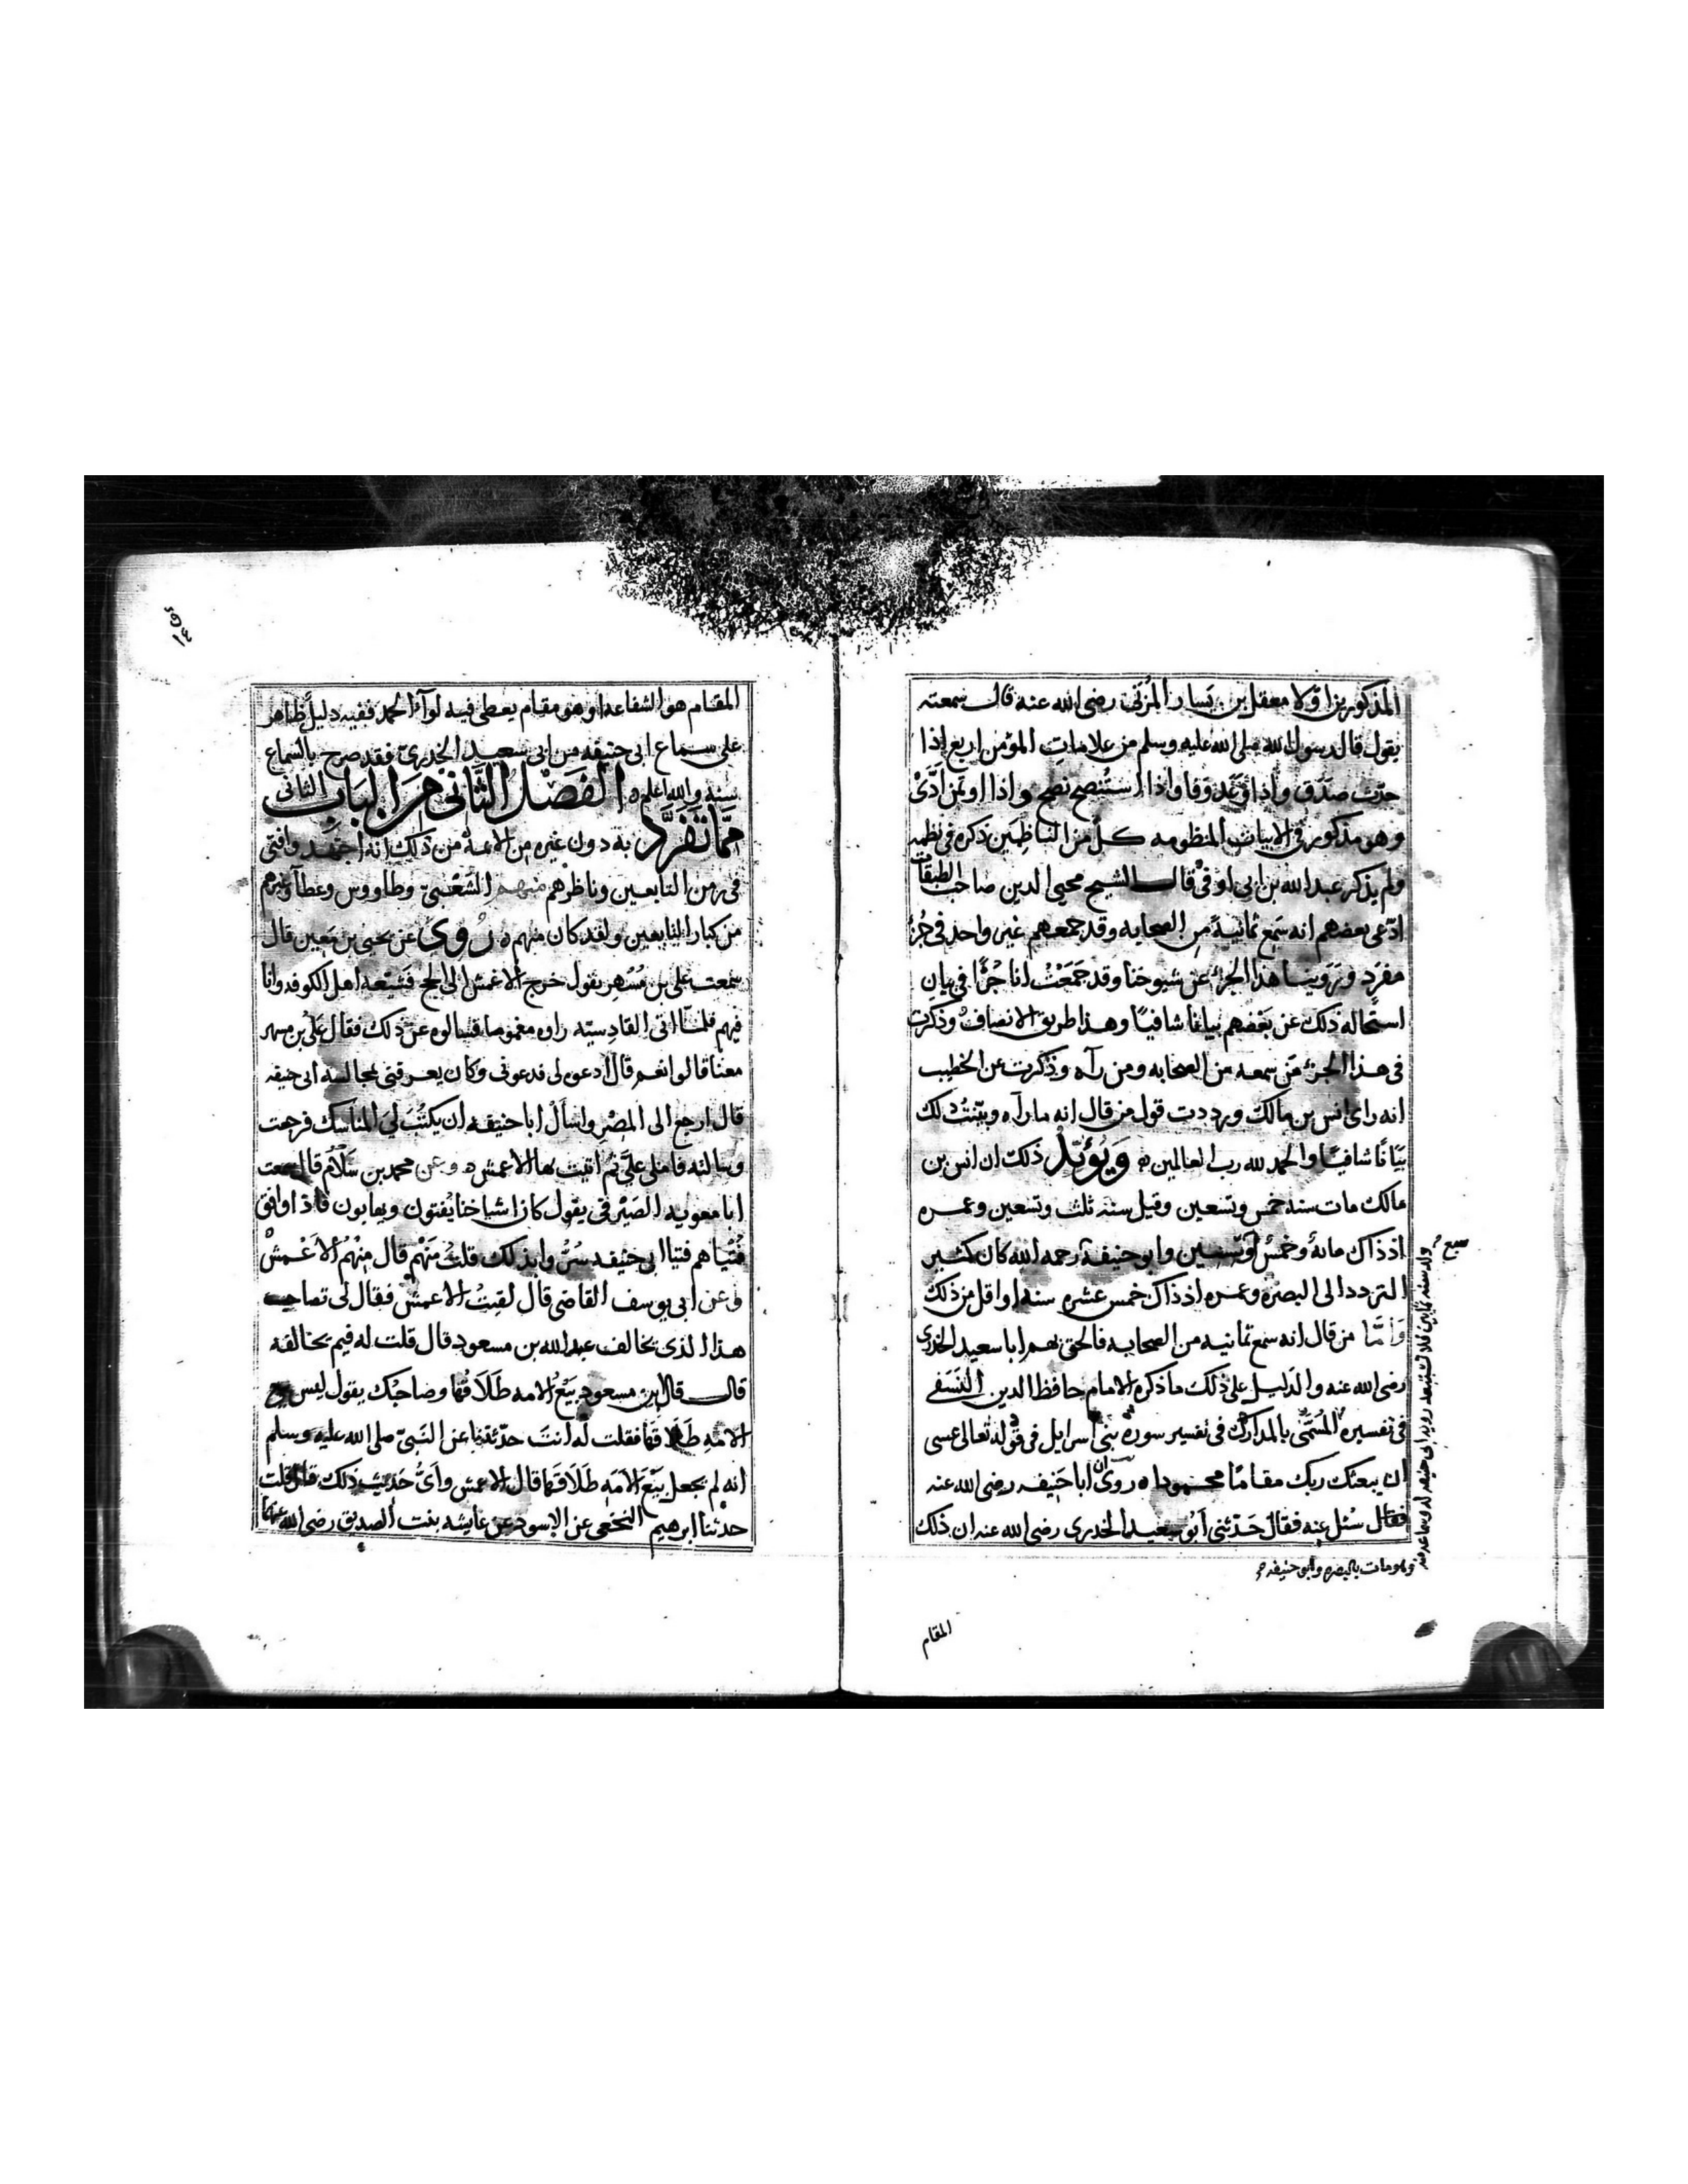 المذكورين اولا معقل بن يسار المُزَنّى رضى الله عنه قال سمعته
يقول قال رسول الله صلى الله عليه وسلم من علامات المؤمن اربع اذا
حدّث صَدَق واذا وَعَد وَفا واذا استُنصح نصح واذا اوتمن أدّىٰ
وهو مذكور فى الابيات المنظومه كلٌ من الناظمين ذكره فى نظمه
ولم يذكر عبد الله بن ابى اوفى قال الشيخ محيى الدين صاحب الطبقات
ادّعى بعضهم انه سَمِع ثمانيةً من الصحابه وقد جمعهم غير واحد فى جُزءٍ
مفرَد ورَوينا هذا الجزء عن شيوخنا وقد جَمَعْتُ انا جُزْءًا فى بيان
استحاله ذلك عن بَعْضهم بيانا شافيًا وهذا طريق الانصاف وذكرت
فى هذا الجزء مَن سمعه من الصحابه ومن رآه وذكرت عن الخطيب
انه راى انس بن مالك ورددت قول من قال انه ما رآه وبيّنتُ ذلك
بيَانًا شافيًا والحمد لله رب العالمين ه وَيُؤيّدُ ذلك ان انس بن
مالك مات سنه خمس وتسعين وقيل سنه ثلث وتسعين وعمره
اذ ذاك مائةٌ وخمسٌ او وتسعين وابو حنيفة رحمه الله كان كثير
التردد الى البصرَه وعمره اذ ذاك خمس عشره سنه او اقل من ذلك
وَامَّا من قال انه سمع ثمانيه من الصحابه فالحق بهم ابا سعيد الخدرى
رضى الله عنه والدَليل على ذلك ما ذكره الامام حافظ الدين النَسَفى
فى تفسيره المُسَمّى بالمدارك فى تفسير سورة بنى اسرايل فى قوله تعالى عسى
ان يبعثك ربك مقامًا محمودا ه روى ان ابا حَنيفه رضى الله عنه
سُئل عنه فقال حَدّثنى أبُو سعيد الخدرى رضى الله عنه ان ذلك
سبع
ولد سنه ثمانين فلا تستبعد رويه ابى حنيفه له وسماعه منه
وهو مات بالبصره وابو حنيفه
المقام
المقام هو الشفاعه او هو مقام يعطى فيه لوآء الحمد ففيه دليلٌ ظاهر
على سماع ابى حنيفه من ابى سعيد الخدرىّ فقد صرح بالسَماع
منه والله اعلم ه الفَصْل الثَّانى مِن البَاب الثانى
مِمَّا تَفَرَّد به دون غيره من الائمه من ذلك انه اجتهد وافتى
فى زمن التابعين وناظرهم منهم الشَعْبىّ وطاووس وعطا وغيرهم
من كبار التابعين ولقد كان منهم ه رُوىَ عن يحيى بن مَعِين قال
سمعت على بن مُسْهر يقول خرج الاعمش الى الحج فشَيّعه اهل الكوفه وانا
فيهم فلمّا اتى القادِسيّه راوه مغموما فسالوه عن ذلك فقال عَلىّ بن مسهر
معنا قالوا نعم قال ادعوه لى فدعونى وكان يعرفنى بمجالسه ابى حنيفه
قال ارجع الى المصْرِ واسأل ابا حنيفه ان يكتُبَ لى المناسك فرجعت
وسالته فاملى علىَّ ثم اتيت بها الاعمش ه وعن محمد بن سَلام قال سمعت
ابا معويه الصَيْرفى يقول كان اشياخنا يُفتون ويهابون فاذا وافق
فُتْياهم فتيا ابى حنيفه سُرُّوا بذلك قلتُ مَنهُم قال مِنْهُم الاَعْمشْ
وعن ابى يوسف القاضى قال لقيتُ الاعمش فقال لى صاحبك
هذا الذى يخالف عبد الله بن مسعود قال قلت له فيم يخالفه
قال قال ابن مسعود بَيْعُ الامه طَلَاقُها وصاحبُك يقول ليس بيع
الامهِ طلاقها فقلت له انتَ حدّثتنا عن النّبىّ صلى الله عليه وسلم
انه لم يجعل بَيْعَ الامَهِ طَلَاقَها قال الاعمش واَىُّ حَديث ذلك قال قلت
حدثنا ابرهيم النخعى عن الاسود عن عايشه بنت الصديق رضى الله عنهما